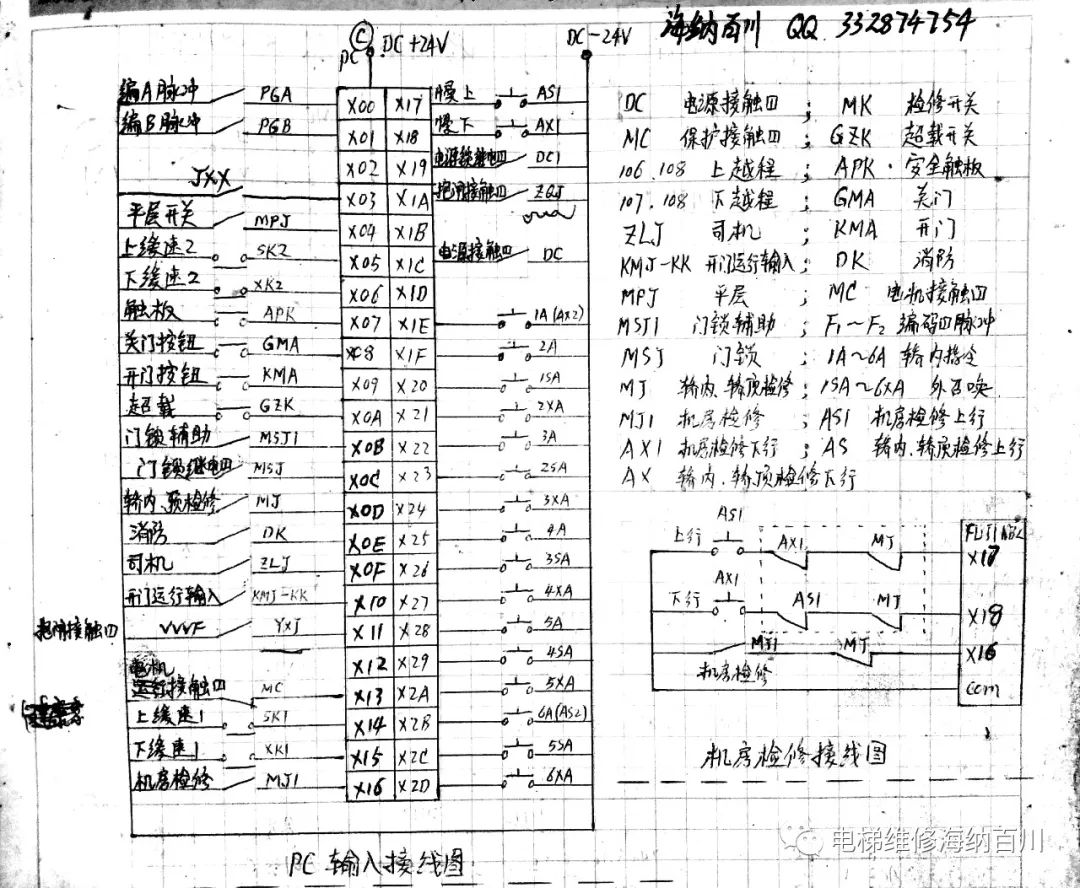 海纳百川 QQ 332874754
Ⓒ DC+24V
PC
DC-24V
编A脉冲 PGA X00 X17 慢上 AS1
编B脉冲 PGB X01 X18 慢下 AX1
X02 X19 DC1
JXX X03 X1A 抱闸接触四 ZQJ
平层开关 MPJ X04 X1B
上缓速2 SK2 X05 X1C 电源接触四 DC
下缓速2 XK2 X06 X1D
触板 APK X07 X1E 1A(AX2)
关门按钮 GMA X08 X1F 2A
开门按钮 KMA X09 X20 1SA
超载 GZK X0A X21 2XA
门锁辅助 MSJ1 X0B X22 3A
门锁继电四 MSJ X0C X23 2SA
轿内、顶检修 MJ X0D X24 3XA
消防 DK X0E X25 4A
司机 ZLJ X0F X26 3SA
开门运行输入 KMJ-KK X10 X27 4XA
抱闸接触四 VVVF YXJ X11 X28 5A
X12 X29 4SA
电机
运行接触四 MC X13 X2A 5XA
上缓速1 SK1 X14 X2B 6A(AS2)
下缓速1 XK1 X15 X2C 5SA
机房检修 MJ1 X16 X2D 6XA
PC 输入接线图
DC 电源接触四 ; MK 检修开关
MC 保护接触四 ; GZK 超载开关
106.108 上越程 ; APK·安全触板
107.108 下越程 ; GMA 关门
ZLJ 司机 ; KMA 开门
KMJ-KK 开门运行输入 ; DK 消防
MPJ 平层 ; MC 电机接触四
MSJ1 门锁辅助 ; F1~F2 编码四脉冲
MSJ 门锁 ; 1A~6A 轿内指令
MJ 轿内、轿顶检修 ; 1SA~6XA 外召唤
MJ1 机房检修 ; AS1 机房检修上行
AX1 机房检修下行 ; AS 轿内、轿顶检修上行
AX 轿内、轿顶检修下行
上行 AS1 AX1 MJ X17
下行 AX1 AS1 MJ X18
MJ1 MJ X16
机房检修
com
机房检修接线图
电梯维修海纳百川